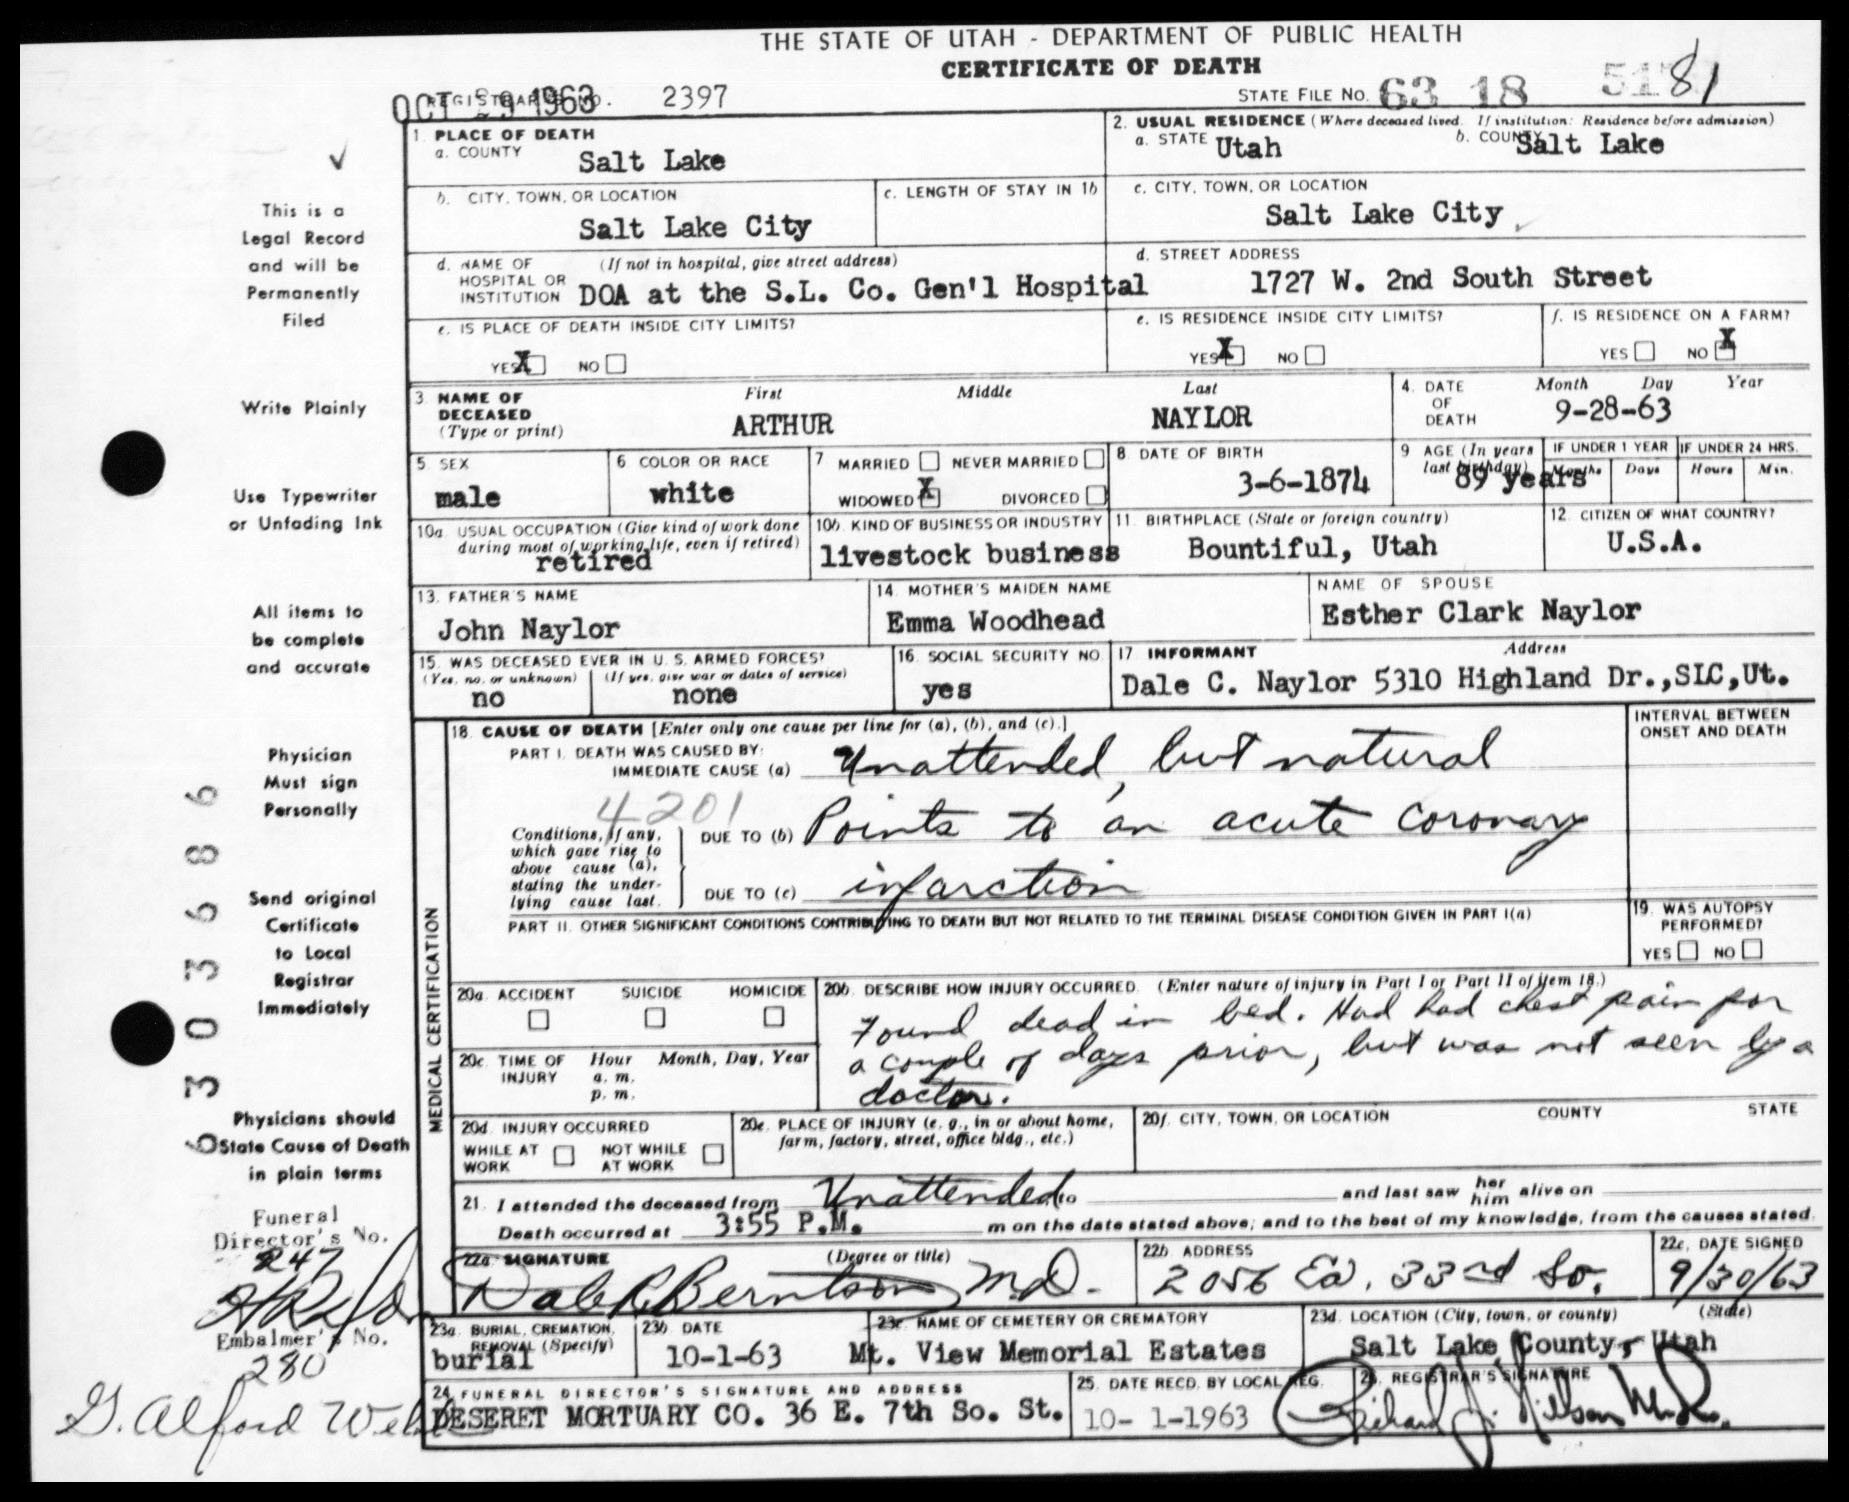 THE STATE OF UTAH - DEPARTMENT OF PUBLIC HEALTH
CERTIFICATE OF DEATH
OCT 29 1963 REGISTRAR'S NO. 2397
STATE FILE NO. 63 18 81
1. PLACE OF DEATH
a. COUNTY Salt Lake
2. USUAL RESIDENCE (Where deceased lived. If institution: Residence before admission)
a. STATE Utah b. COUNTY Salt Lake
b. CITY, TOWN, OR LOCATION Salt Lake City
c. LENGTH OF STAY IN 1b
c. CITY, TOWN, OR LOCATION Salt Lake City
d. NAME OF HOSPITAL OR INSTITUTION (If not in hospital, give street address)
DOA at the S.L. Co. Gen'l Hospital
d. STREET ADDRESS
1727 W. 2nd South Street
e. IS PLACE OF DEATH INSIDE CITY LIMITS?
YES X NO
e. IS RESIDENCE INSIDE CITY LIMITS?
YES X NO
f. IS RESIDENCE ON A FARM?
YES NO X
3. NAME OF DECEASED (Type or print)
First Middle Last
ARTHUR NAYLOR
4. DATE OF DEATH Month Day Year
9-28-63
5. SEX
male
6. COLOR OR RACE
white
7. MARRIED NEVER MARRIED
WIDOWED X DIVORCED
8. DATE OF BIRTH
3-6-1874
9. AGE (In years last birthday)
89 years
IF UNDER 1 YEAR
Months Days
IF UNDER 24 HRS.
Hours Min.
10a. USUAL OCCUPATION (Give kind of work done during most of working life, even if retired)
retired
10b. KIND OF BUSINESS OR INDUSTRY
livestock business
11. BIRTHPLACE (State or foreign country)
Bountiful, Utah
12. CITIZEN OF WHAT COUNTRY?
U.S.A.
13. FATHER'S NAME
John Naylor
14. MOTHER'S MAIDEN NAME
Emma Woodhead
NAME OF SPOUSE
Esther Clark Naylor
15. WAS DECEASED EVER IN U. S. ARMED FORCES?
(Yes, no, or unknown) (If yes, give war or dates of service)
no none
16. SOCIAL SECURITY NO.
yes
17. INFORMANT Address
Dale C. Naylor 5310 Highland Dr.,SLC,Ut.
MEDICAL CERTIFICATION
18. CAUSE OF DEATH [Enter only one cause per line for (a), (b), and (c).]
INTERVAL BETWEEN ONSET AND DEATH
PART I. DEATH WAS CAUSED BY:
IMMEDIATE CAUSE (a) Unattended, but natural
4201
Conditions, if any, which gave rise to above cause (a), stating the underlying cause last.
DUE TO (b) Points to an acute coronary
DUE TO (c) infarction
PART II. OTHER SIGNIFICANT CONDITIONS CONTRIBUTING TO DEATH BUT NOT RELATED TO THE TERMINAL DISEASE CONDITION GIVEN IN PART I(a)
19. WAS AUTOPSY PERFORMED?
YES NO
20a. ACCIDENT SUICIDE HOMICIDE
20b. DESCRIBE HOW INJURY OCCURRED. (Enter nature of injury in Part I or Part II of item 18.)
Found dead in bed. Had had chest pain for
a couple of days prior, but was not seen by a
doctor.
20c. TIME OF INJURY Hour Month, Day, Year
a. m.
p. m.
20d. INJURY OCCURRED
WHILE AT WORK NOT WHILE AT WORK
20e. PLACE OF INJURY (e. g., in or about home, farm, factory, street, office bldg., etc.)
20f. CITY, TOWN, OR LOCATION COUNTY STATE
21. I attended the deceased from Unattended to and last saw her him alive on
Death occurred at 3:55 P.M. m on the date stated above; and to the best of my knowledge, from the causes stated.
22a. SIGNATURE (Degree or title)
Dale R Berntson M.D.
22b. ADDRESS
2056 Ea. 33rd So.
22c. DATE SIGNED
9/30/63
23a. BURIAL, CREMATION, REMOVAL (Specify)
burial
23b. DATE
10-1-63
23c. NAME OF CEMETERY OR CREMATORY
Mt. View Memorial Estates
23d. LOCATION (City, town, or county) (State)
Salt Lake County, Utah
24. FUNERAL DIRECTOR'S SIGNATURE AND ADDRESS
DESERET MORTUARY CO. 36 E. 7th So. St.
25. DATE RECD. BY LOCAL REG.
10- 1-1963
26. REGISTRAR'S SIGNATURE
Richard J. Nilson M.D.
This is a
Legal Record
and will be
Permanently
Filed
Write Plainly
Use Typewriter
or Unfading Ink
All items to
be complete
and accurate
Physician
Must sign
Personally
Send original
Certificate
to Local
Registrar
Immediately
Physicians should
State Cause of Death
in plain terms
Funeral
Director's No.
247
Embalmer's No.
280
G. Alford
6303686